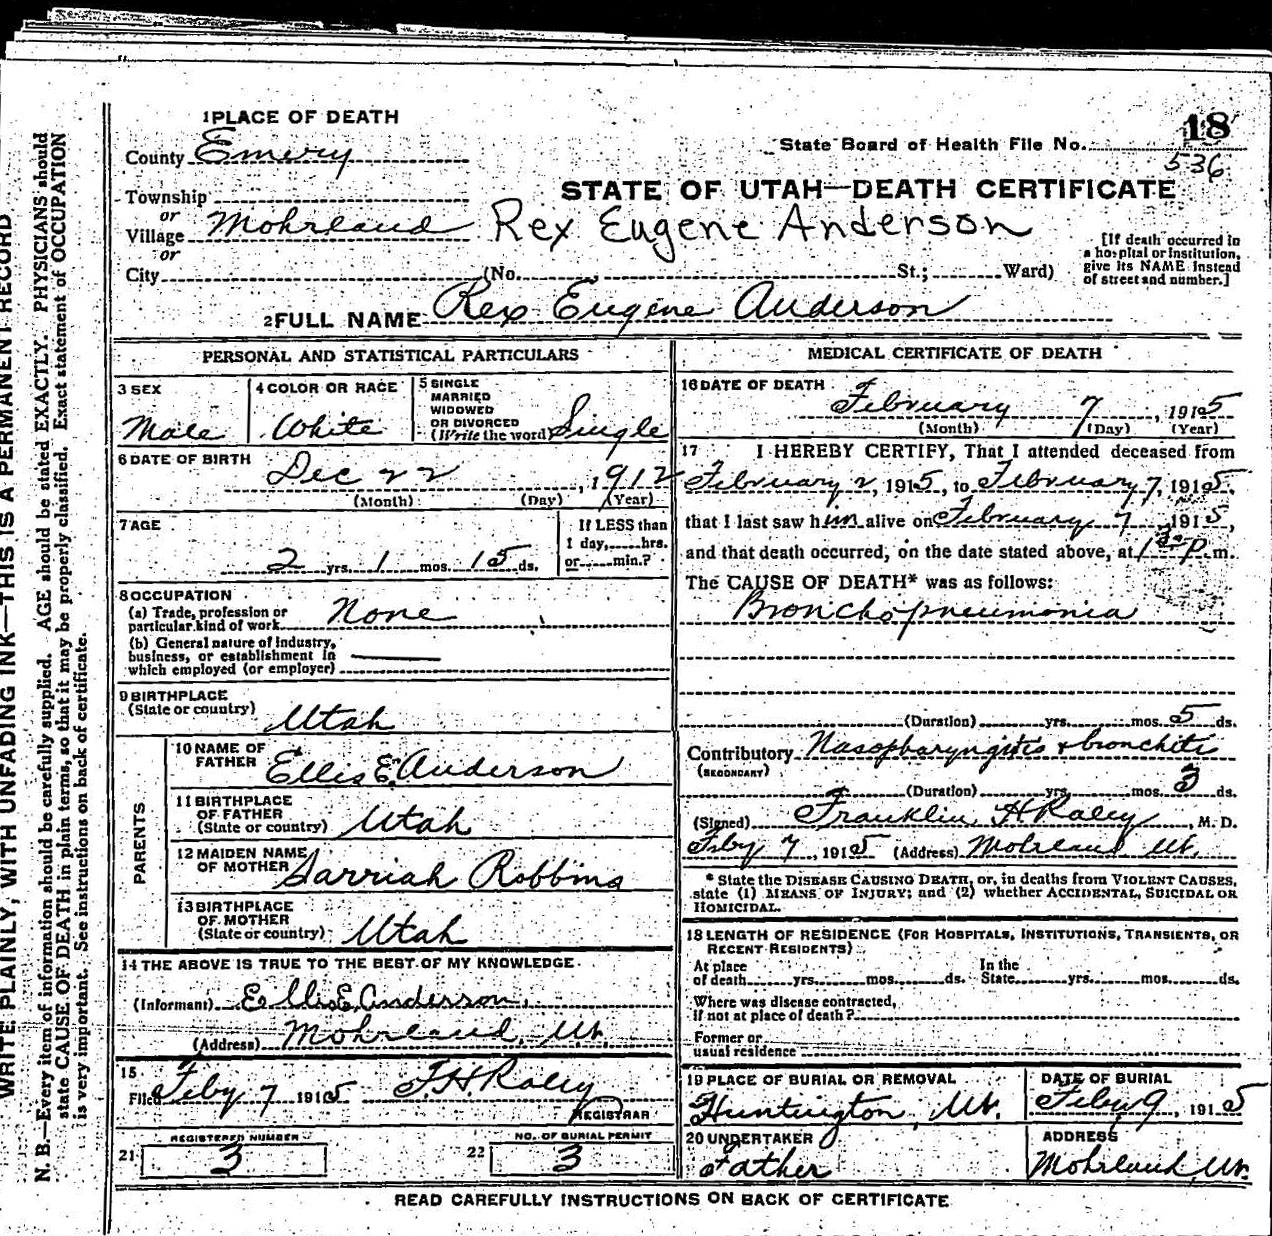 1 PLACE OF DEATH
18
County Emery
State Board of Health File No.
536
Township
or
Village Mohrland
or
STATE OF UTAH—DEATH CERTIFICATE
Rex Eugene Anderson
City (No. , St.; Ward)
[If death occurred in
a hospital or institution,
give its NAME instead
of street and number.]
2 FULL NAME Rex Eugene Anderson
PERSONAL AND STATISTICAL PARTICULARS
3 SEX
Male
4 COLOR OR RACE
White
5 SINGLE
MARRIED
WIDOWED
OR DIVORCED
(Write the word) Single
6 DATE OF BIRTH
Dec 22, 1912
(Month) (Day) (Year)
7 AGE
2 yrs. 1 mos. 15 ds.
If LESS than
1 day, hrs.
or min.?
8 OCCUPATION
(a) Trade, profession or
particular kind of work None
(b) General nature of Industry,
business, or establishment in
which employed (or employer)
9 BIRTHPLACE
(State or country) Utah
PARENTS
10 NAME OF
FATHER Ellis E. Anderson
11 BIRTHPLACE
OF FATHER
(State or country) Utah
12 MAIDEN NAME
OF MOTHER Sarriah Robbins
13 BIRTHPLACE
OF MOTHER
(State or country) Utah
14 THE ABOVE IS TRUE TO THE BEST OF MY KNOWLEDGE
(Informant) Ellis E. Anderson,
(Address) Mohrland, Ut.
15
Filed Feby 7 1915 F. H. Raley
REGISTRAR
REGISTERED NUMBER
21 3
NO. OF BURIAL PERMIT
22 3
MEDICAL CERTIFICATE OF DEATH
16 DATE OF DEATH
February 7, 1915
(Month) (Day) (Year)
17 I HEREBY CERTIFY, That I attended deceased from
February 2, 1915, to February 7, 1915,
that I last saw him alive on February 7 1915,
and that death occurred, on the date stated above, at 1 30 P. m.
The CAUSE OF DEATH* was as follows:
Broncho pneumonia
(Duration) yrs. mos. 5 ds.
Contributory Nasopharyngitis & bronchitis
(SECONDARY)
(Duration) yrs. mos. 3 ds.
(Signed) Franklin H Raley, M. D.
Feby 7, 1915 (Address) Mohrland Ut.
* State the DISEASE CAUSING DEATH, or, in deaths from VIOLENT CAUSES,
state (1) MEANS OF INJURY; and (2) whether ACCIDENTAL, SUICIDAL OR
HOMICIDAL.
18 LENGTH OF RESIDENCE (FOR HOSPITALS, INSTITUTIONS, TRANSIENTS, OR
RECENT RESIDENTS)
At place
of death yrs. mos. ds.
In the
State yrs. mos. ds.
Where was disease contracted,
If not at place of death?
Former or
usual residence
19 PLACE OF BURIAL OR REMOVAL
Huntington, Ut.
DATE OF BURIAL
Feby 9, 1915
20 UNDERTAKER
Father
ADDRESS
Mohrland, Ut.
READ CAREFULLY INSTRUCTIONS ON BACK OF CERTIFICATE
WRITE PLAINLY, WITH UNFADING INK—THIS IS A PERMANENT RECORD
N. B.—Every item of information should be carefully supplied. AGE should be stated EXACTLY. PHYSICIANS should
state CAUSE OF DEATH in plain terms, so that it may be properly classified. Exact statement of OCCUPATION
is very important. See instructions on back of certificate.